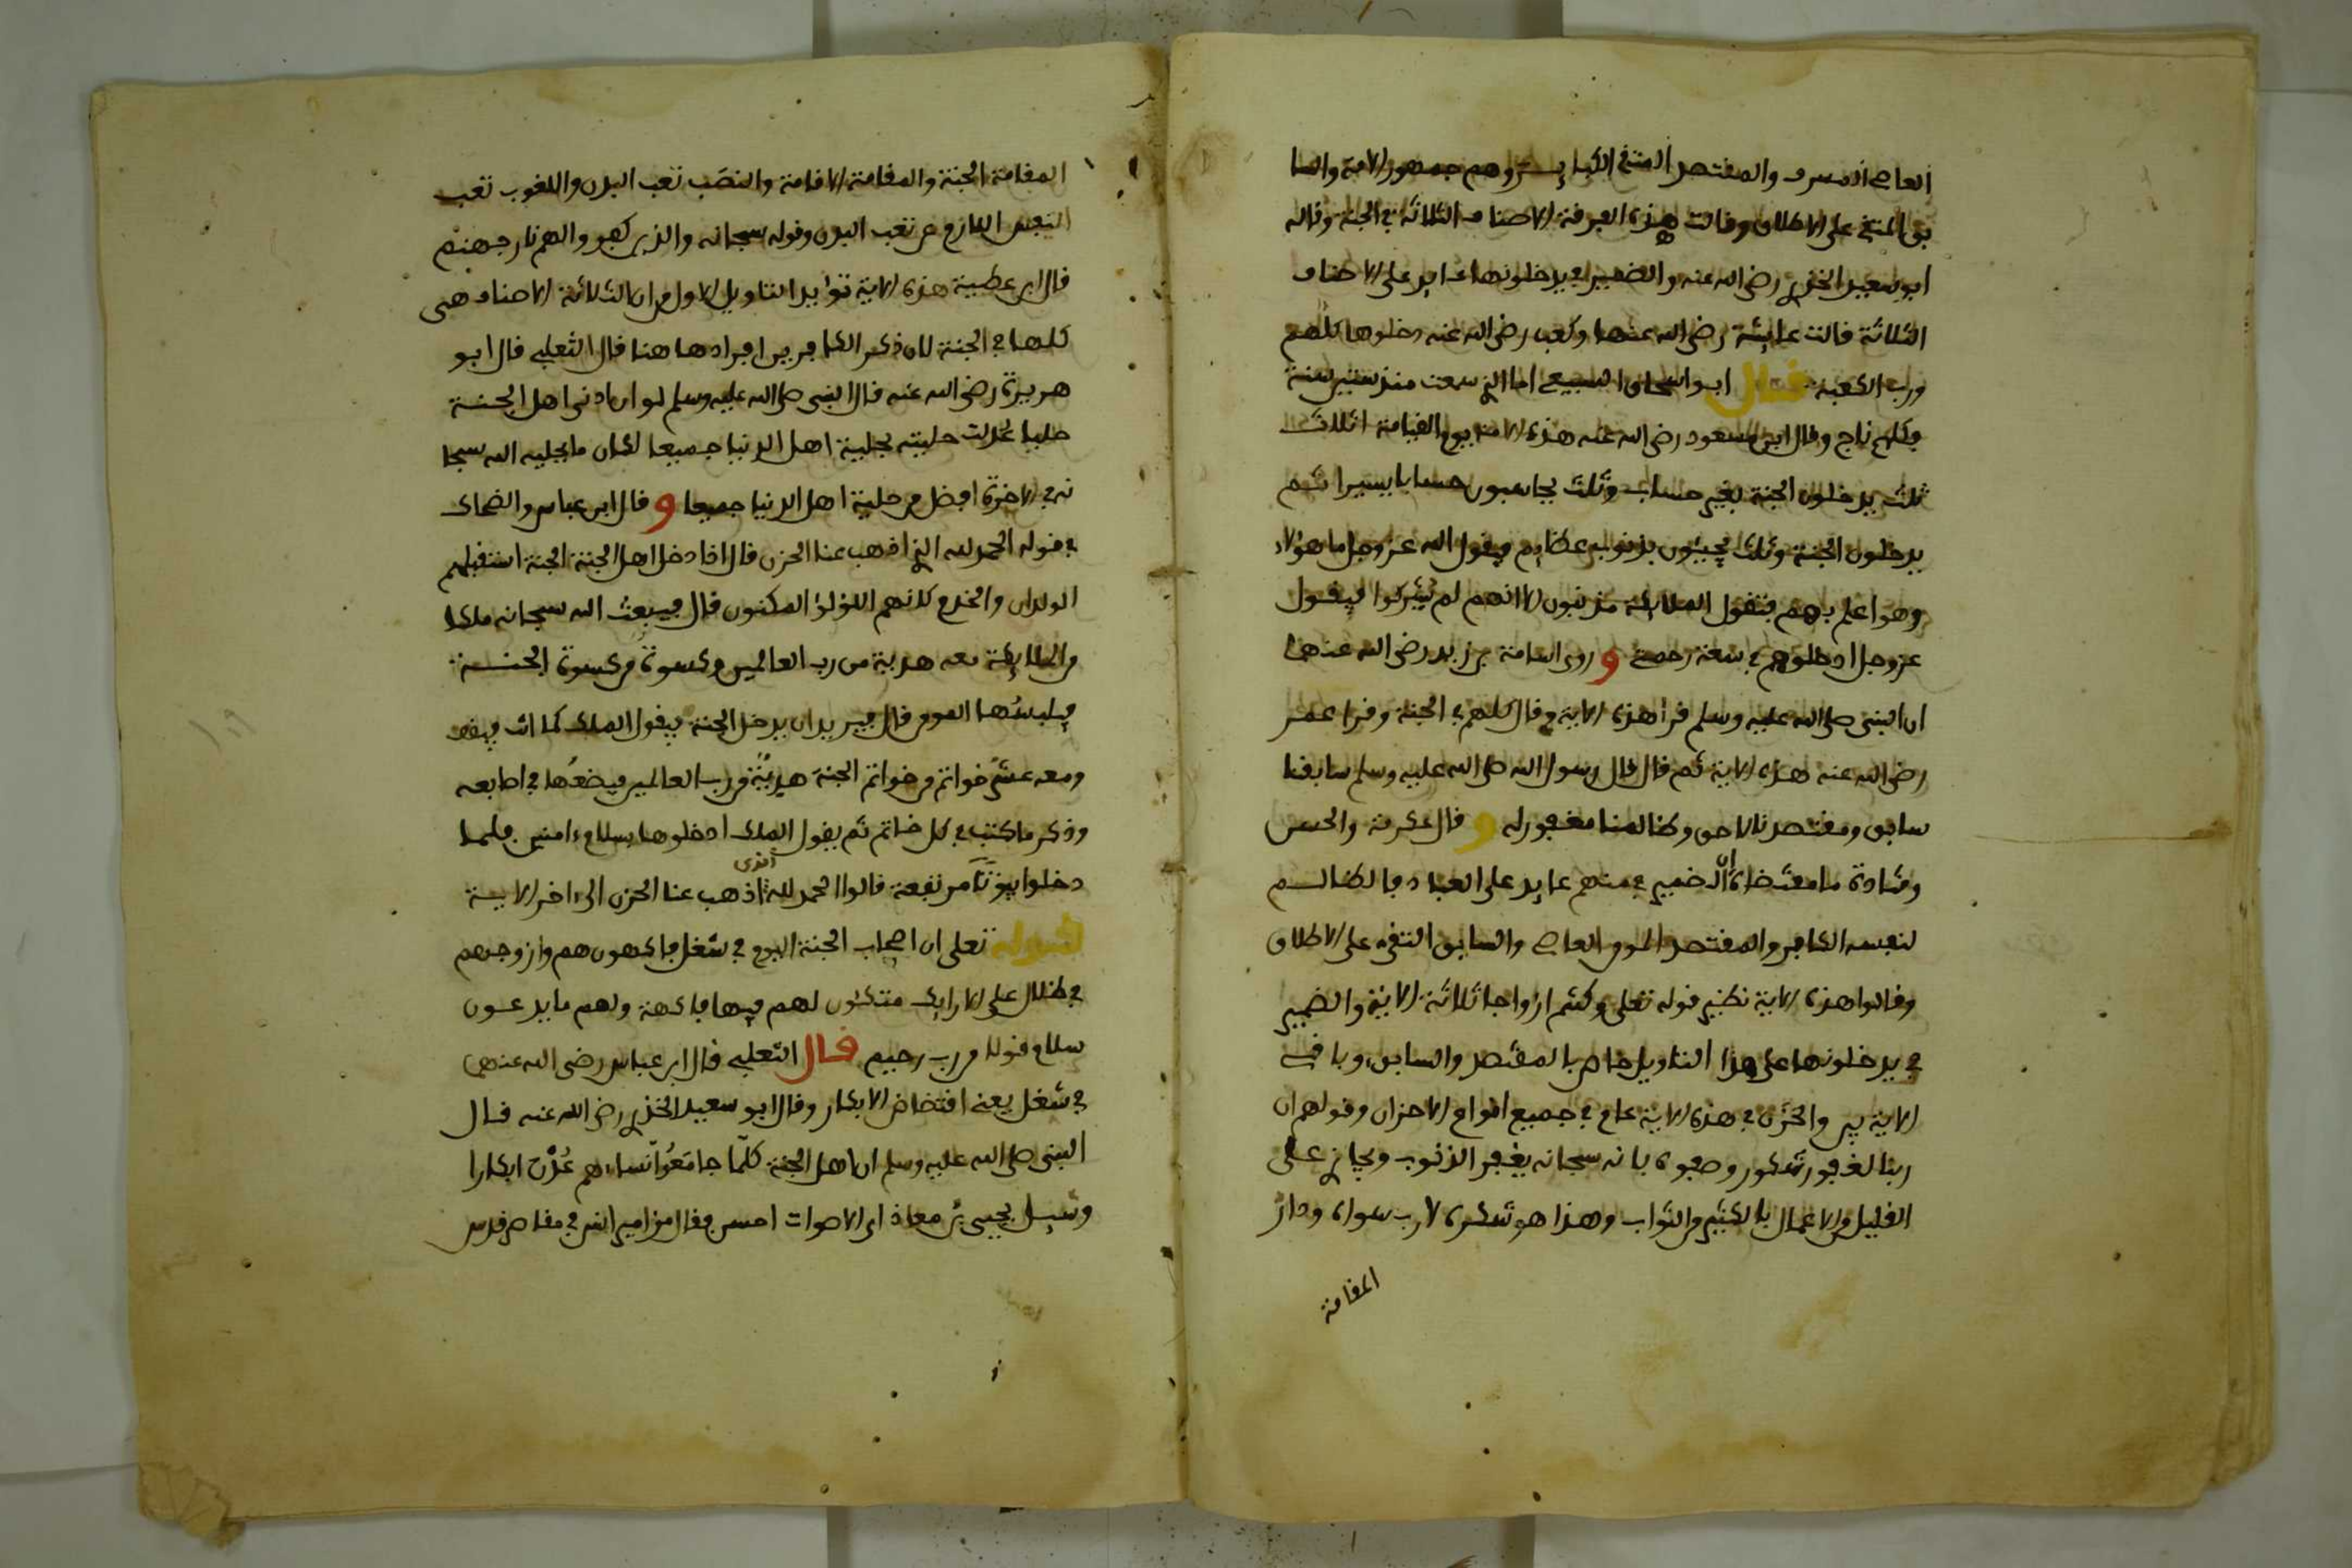 العاصي المسرف والمقتصد المتقي الكبائر وهم جمهور الامة والسا
بق المتقي على الاطلاق وقالت هذه الفرقة الاصناف الثلاثة في الجنة وقاله
ابو سعيد الخدري رضي الله عنه والضمير في يدخلونها عايد على الاصناف
الثلاثة قالت عايشة رضي الله عنها وكعب رضي الله عنه دخلوها كلهم
ورب الكعبة قال ابو اسحاق السبيعي اما الذي سمعت منذ ستين سنة
فكلهم ناج وقال ابن مسعود رضي الله عنه هذه الامة يوم القيامة اثلاث
ثلث يدخلون الجنة بغير حساب وثلث يحاسبون حسابا يسيرا ثم
يدخلون الجنة وثلث يجيئون بذنوب عظايم فيقول الله عز وجل ما هؤلاء
وهو اعلم بهم فتقول الملايكة مذنبون الا انهم لم يشركوا فيقول
عز وجل ادخلوهم في سعة رحمتي و روى اسامة بن زيد رضي الله عنهما
ان النبي صلى الله عليه وسلم قرا هذه الاية وقال كلهم في الجنة وقرا عمر
رضي الله عنه هذه الاية ثم قال قال رسول الله صلى الله عليه وسلم سابقنا
سابق ومقتصدنا لاحق وظالمنا مغفور له و قال عكرمة والحسن
وقتادة ما مقتضاه ان الضمير في منهم عايد على العباد فالظالم
لنفسه الكافر والمقتصد المومن العاصي والسابق التقي على الاطلاق
وقالوا هذه الاية نظير قوله تعلى وكنتم ازواجا ثلاثة الاية والضمير
في يدخلونها على هذا التاويل خاص بالمقتصد والسابق وباقي
الاية بين والحزن في هذه الاية عام في جميع انواع الاحزان وقولهم ان
ربنا لغفور شكور وصفوه بانه سبحانه يغفر الذنوب ويجازي على
القليل من الاعمال بالكثير من الثواب وهذا هو شكره لا رب سواه ودار
المقامة
المقامة الجنة والمقامة الاقامة والنصب تعب البدن واللغوب تعب
النفس اللازم عن تعب البدن وقوله سبحانه والذين كفروا لهم نار جهنم
قال ابن عطية هذه الاية تؤيد التاويل الاول من ان الثلاثة الاصناف هي
كلها في الجنة لان ذكر الكافرين افرادها هنا قال الثعلبي قال ابو
هريرة رضي الله عنه قال النبي صلى الله عليه وسلم لو ان ادنى اهل الجنة
حليا عدلت حليته بحلية اهل الدنيا جميعا لكان ما يحليه الله سبحا
نه في الاخرة افضل من حلية اهل الدنيا جميعا و قال ابن عباس والضحاك
في قوله الحمد لله الذي اذهب عنا الحزن قال اذا دخل اهل الجنة الجنة استقبلهم
الولدان والخدم كانهم اللؤلؤ المكنون قال فيبعث الله سبحانه ملكا
من الملايكة معه هدية من رب العالمين وكسوة من كسوة الجنة
فيلبسها المومن قال فيريد ان يدخل الجنة فيقول الملك كما انت فيقف
ومعه عشر خواتم من خواتم الجنة هدية من رب العالمين فيضعها في اصابعه
وذكر ما كتب في كل خاتم ثم يقول الملك ادخلوها بسلام ءامنين فلما
دخلوا بيوتا مرتفعة قالوا الحمد لله الذي اذهب عنا الحزن الى اخر الاية
قوله تعلى ان اصحاب الجنة اليوم في شغل فاكهون هم وازوجهم
في ظلل على الارايك متكئون لهم فيها فاكهة ولهم ما يدعون
سلام قولا من رب رحيم قال الثعلبي قال ابن عباس رضي الله عنهما
في شغل يعني افتضاض الابكار وقال ابو سعيد الخدري رضي الله عنه قال
النبي صلى الله عليه وسلم ان اهل الجنة كلما جامعوا نساءهم عدن ابكارا
وسيل يحيى بن معاذ اي الاصوات احسن فقال مزامير انس في مقاصر قدس